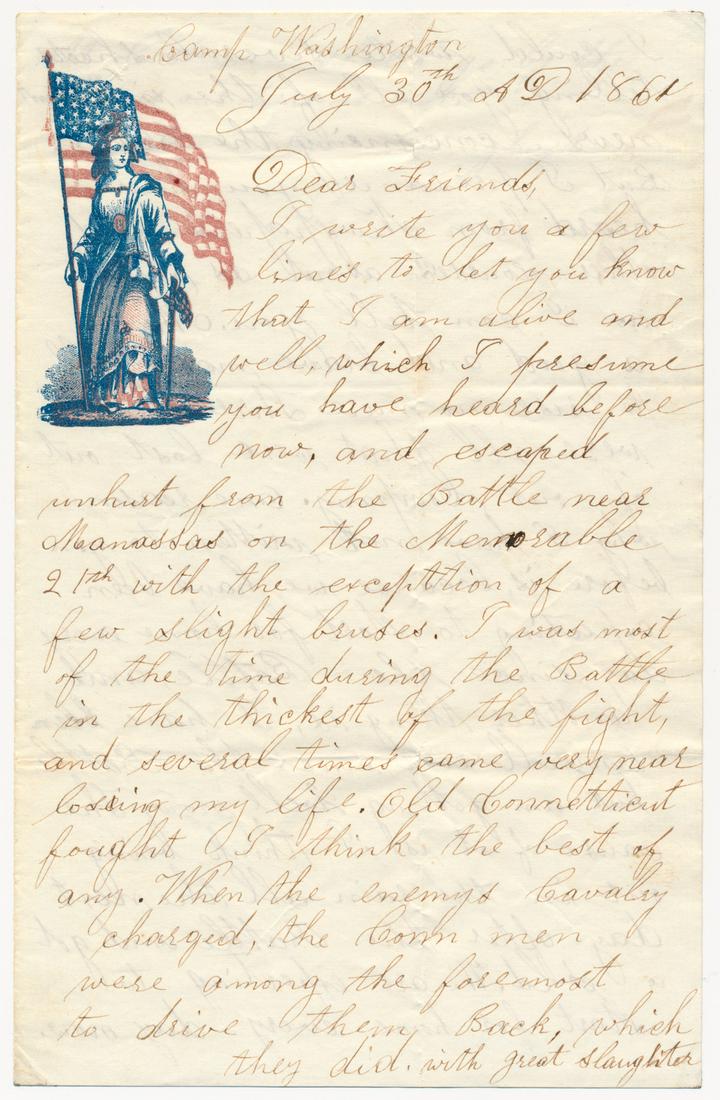 Camp Washington
July 30th AD 1861
Dear Friends,
I write you a few
lines to let you know
that I am alive and
well, which I presume
you have heard before
now, and escaped
unhurt from the Battle near
Manassas on the Memorable
21th with the excepttion of a
few slight bruses. I was most
of the time during the Battle
in the thickest of the fight,
and several times came very near
lossing my life. Old Connetticut
fought I think the best of
any. When the enemys Cavalry
charged, the Conn men
were among the foremost
to drive them Back, which
they did. with great slaughter